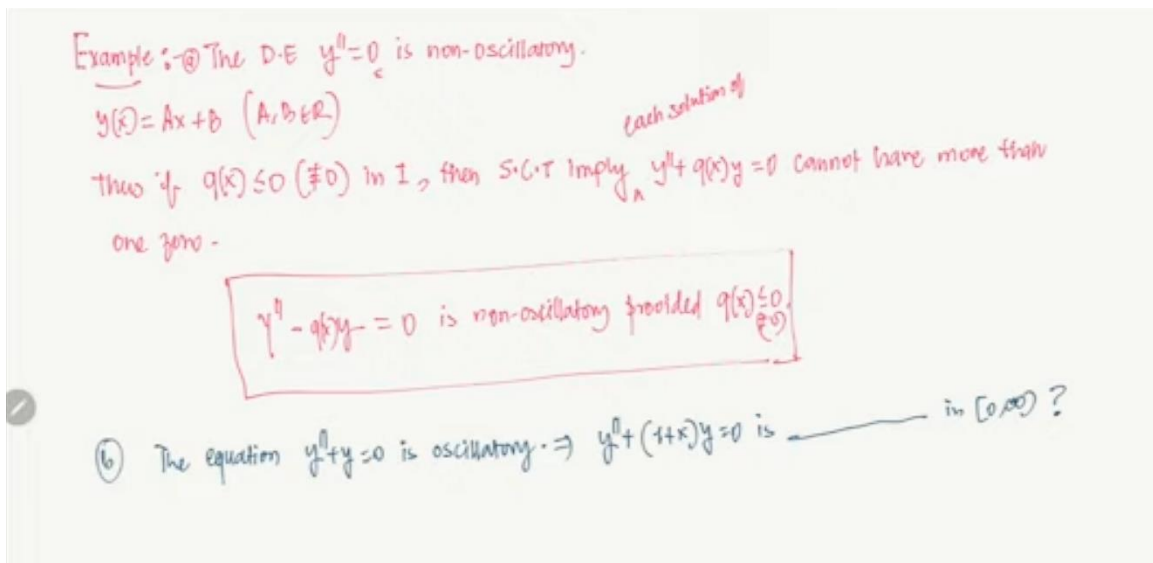 Example :- ⓐ The D.E y''=0 is non-oscillatory.
y(x) = Ax+B (A,B∈R)
each solution of
thus if q(x) ≤0 (≢0) in I, then S.C.T Imply ∧ y''+ q(x)y =0 cannot have more than
one zero.
y'' - q(x)y = 0 is non-oscillatory provided q(x) ≤0
(≢0)
ⓑ The equation y''+y=0 is oscillatory. ⇒ y''+(1+x)y=0 is ______ in [0,∞) ?